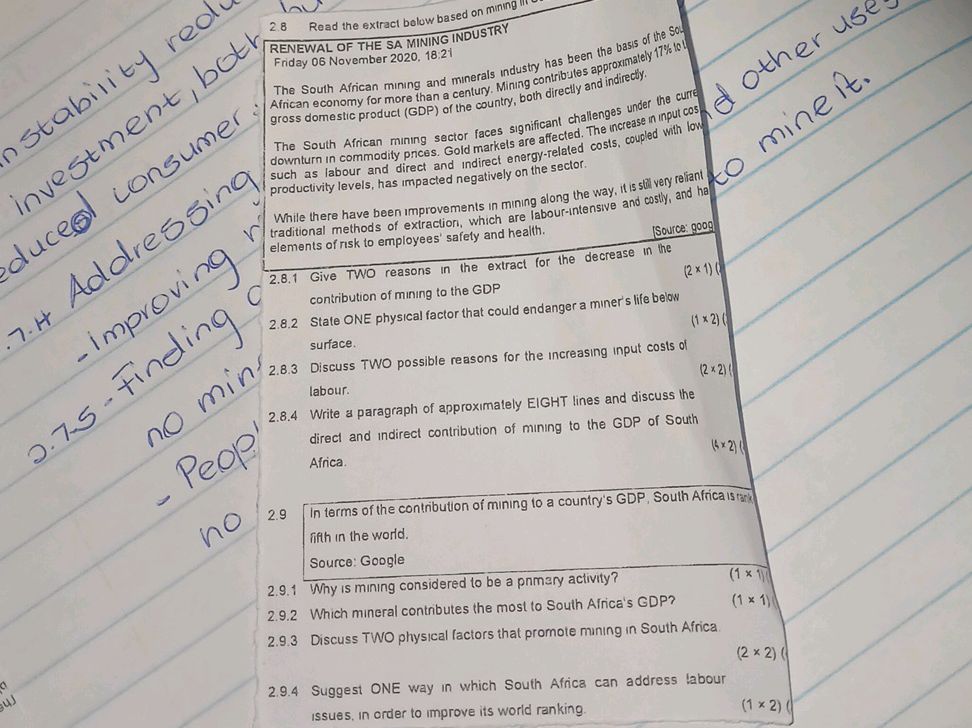 nstability redu
investment, both
educed consumer
.7.4 Addressing
- improving
2.7.5 - Finding
no min
- Peop
no
nd other uses
to mine it.
2.8 Read the extract below based on mining in
RENEWAL OF THE SA MINING INDUSTRY
Friday 06 November 2020, 18:21
The South African mining and minerals industry has been the basis of the Sou
African economy for more than a century. Mining contributes approximately 17% to t
gross domestic product (GDP) of the country, both directly and indirectly.
The South African mining sector faces significant challenges under the curre
downturn in commodity prices. Gold markets are affected. The increase in input cos
such as labour and direct and indirect energy-related costs, coupled with low
productivity levels, has impacted negatively on the sector.
While there have been improvements in mining along the way, it is still very reliant
traditional methods of extraction, which are labour-intensive and costly, and ha
elements of risk to employees' safety and health.
[Source: goog
2.8.1 Give TWO reasons in the extract for the decrease in the
contribution of mining to the GDP (2 x 1) (
2.8.2 State ONE physical factor that could endanger a miner's life below
surface. (1 x 2) (
2.8.3 Discuss TWO possible reasons for the increasing input costs of
labour. (2 x 2) (
2.8.4 Write a paragraph of approximately EIGHT lines and discuss the
direct and indirect contribution of mining to the GDP of South
Africa. (4 x 2) (
2.9 In terms of the contribution of mining to a country's GDP, South Africa is rank
fifth in the world.
Source: Google
2.9.1 Why is mining considered to be a primary activity? (1 x 1) (
2.9.2 Which mineral contributes the most to South Africa's GDP? (1 x 1)
2.9.3 Discuss TWO physical factors that promote mining in South Africa.
(2 x 2) (
2.9.4 Suggest ONE way in which South Africa can address labour
issues, in order to improve its world ranking. (1 x 2) (